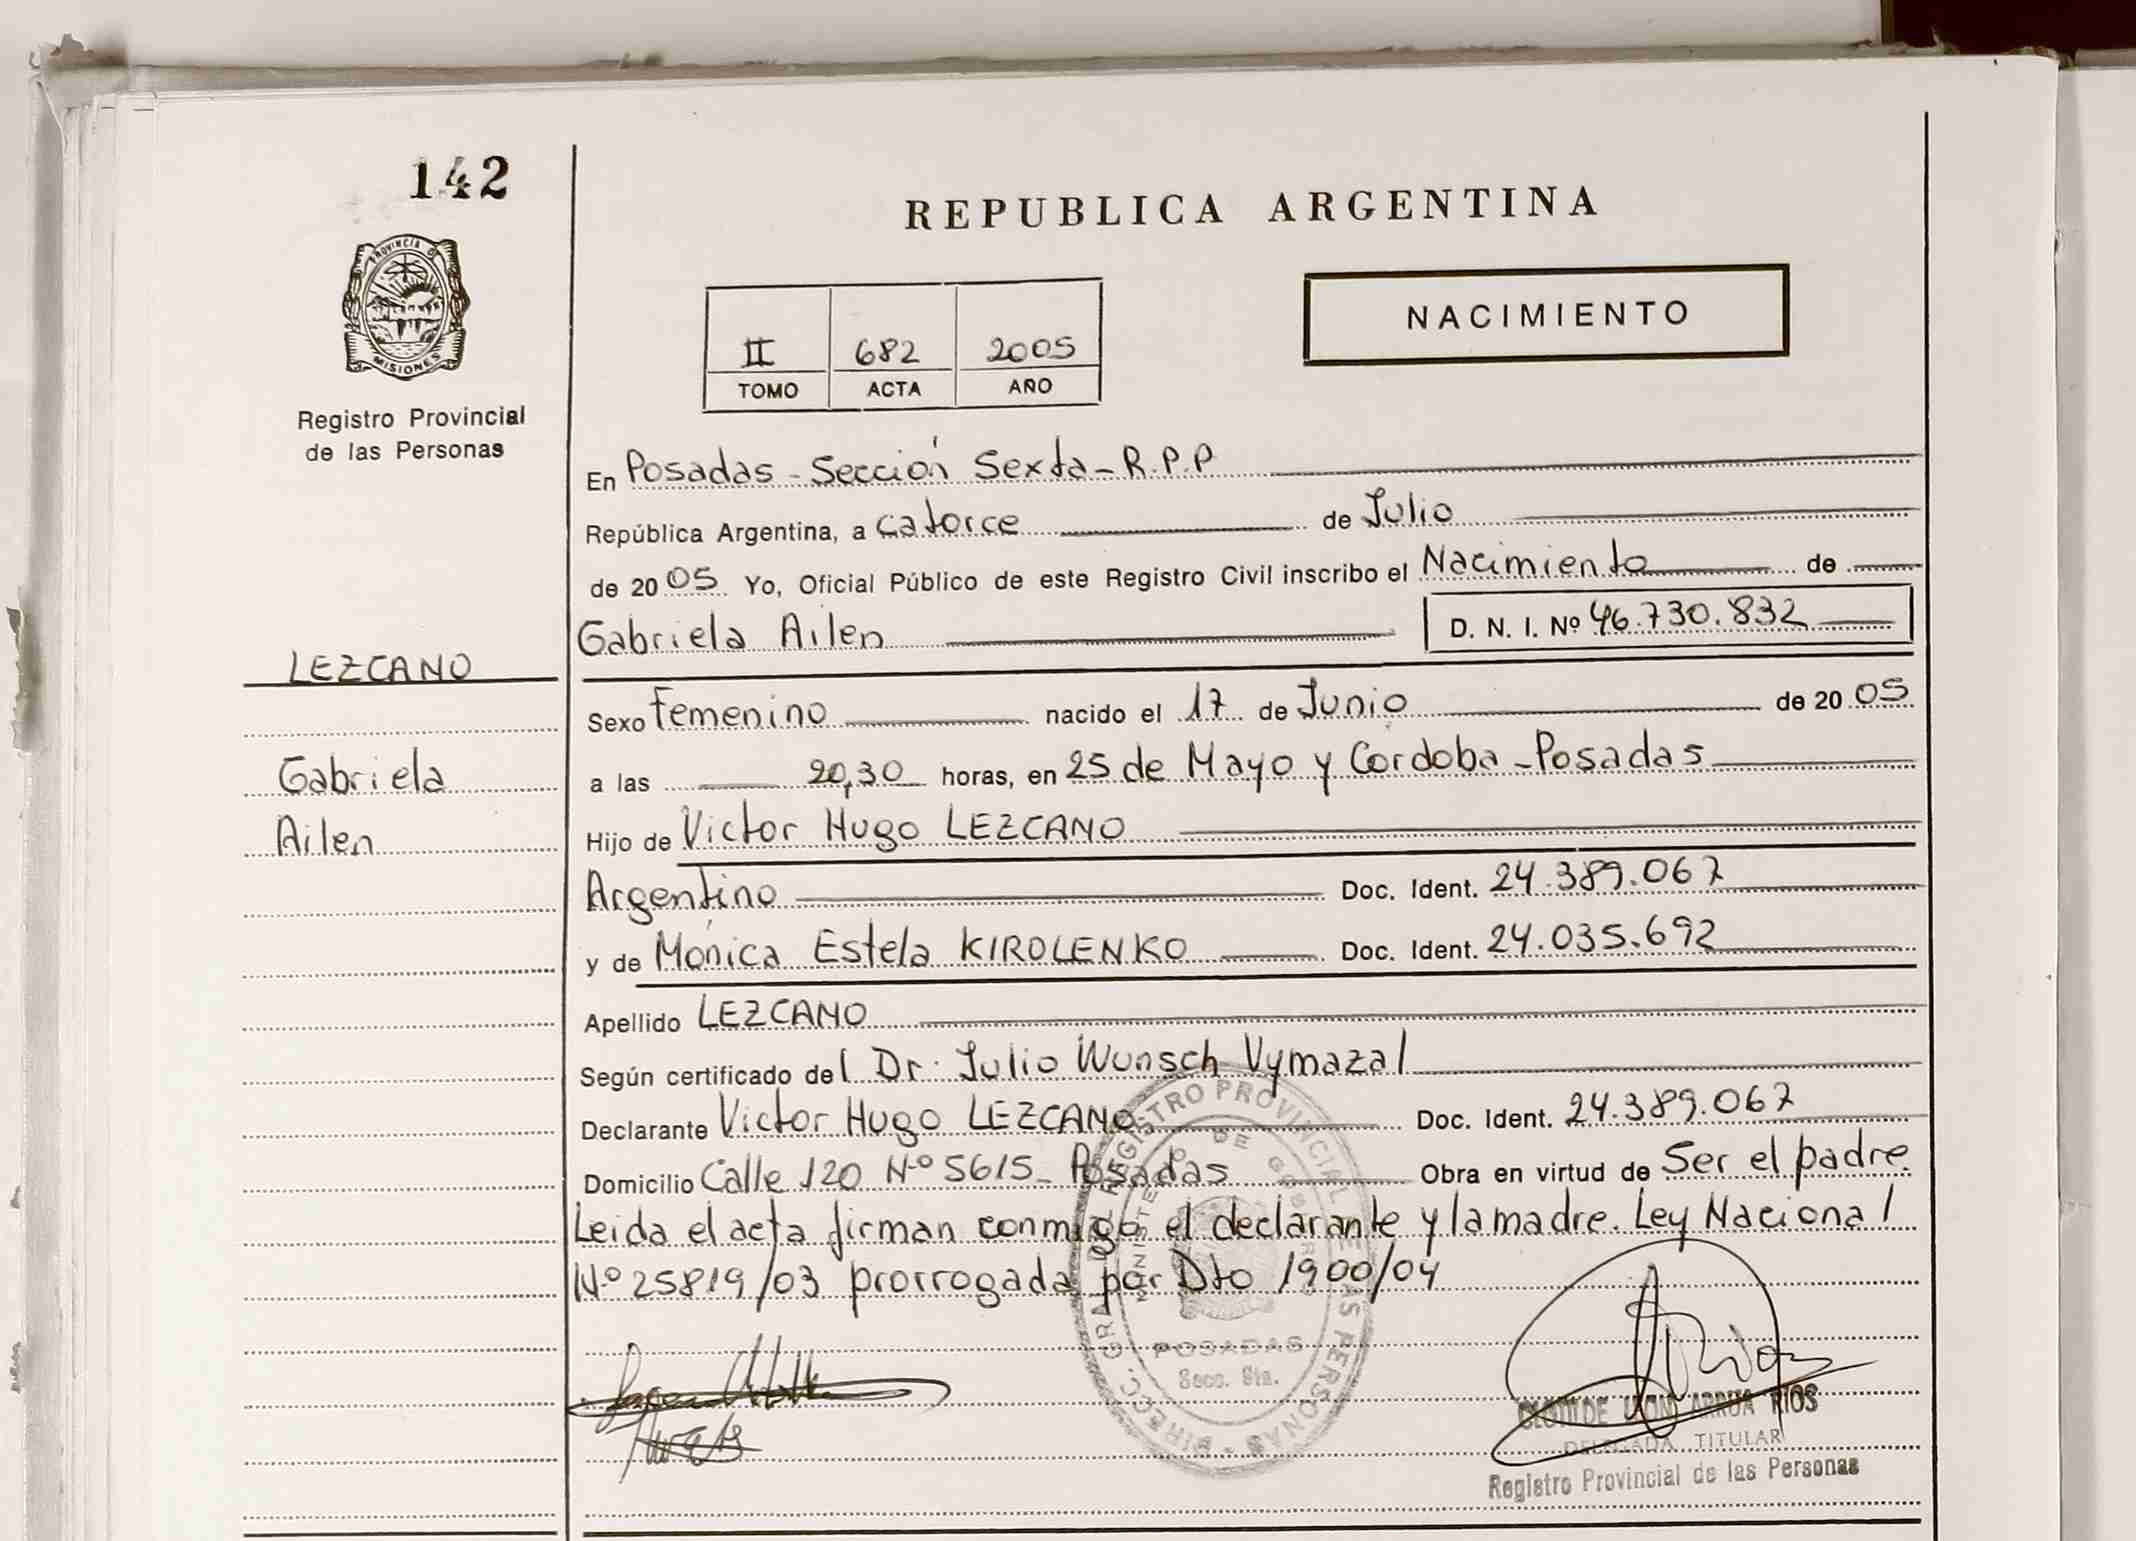 142
PROVINCIA DE
MISIONES
Registro Provincial
de las Personas
LEZCANO
Gabriela
Ailen
REPUBLICA ARGENTINA
NACIMIENTO
II 682 2005
TOMO ACTA AÑO
En Posadas - Sección Sexta - R.P.P
República Argentina, a catorce de Julio
de 2005 Yo, Oficial Público de este Registro Civil inscribo el Nacimiento de
Gabriela Ailen D. N. I. Nº 46.730.832
Sexo Femenino nacido el 17 de Junio de 2005
a las 20,30 horas, en 25 de Mayo y Cordoba - Posadas
Hijo de Victor Hugo LEZCANO
Argentino Doc. Ident. 24.389.067
y de Mónica Estela KIROLENKO Doc. Ident. 24.035.692
Apellido LEZCANO
Según certificado del Dr. Julio Wunsch Vymazal
Declarante Victor Hugo LEZCANO Doc. Ident. 24.389.067
Domicilio Calle 120 Nº 5615 - Posadas Obra en virtud de Ser el padre
Leida el acta firman conmigo el declarante y la madre. Ley Nacional
Nº 25819/03 prorrogada por Dto 1900/04
DIRECC. GRAL. DEL REGISTRO PROVINCIAL DE LAS PERSONAS
MINISTERIO DE GOBIERNO
POSADAS
Secc. 6ta.
ARRUA RIOS
DELEGADA TITULAR
Registro Provincial de las Personas